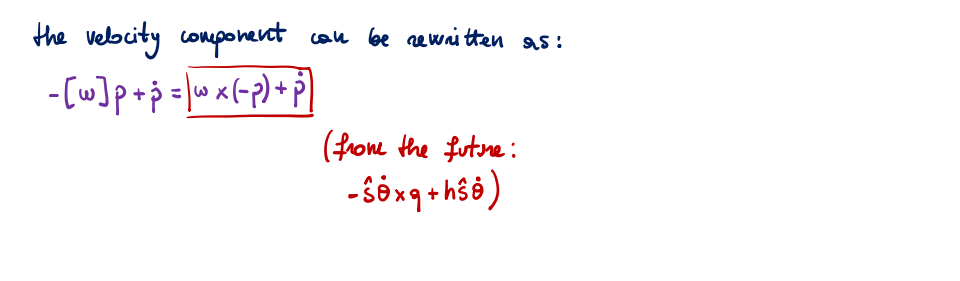 the velocity component can be rewritten as:
-[ω]p + ṗ = ω × (-p) + ṗ
(from the future:
-ŝθ̇ × q + hŝθ̇)